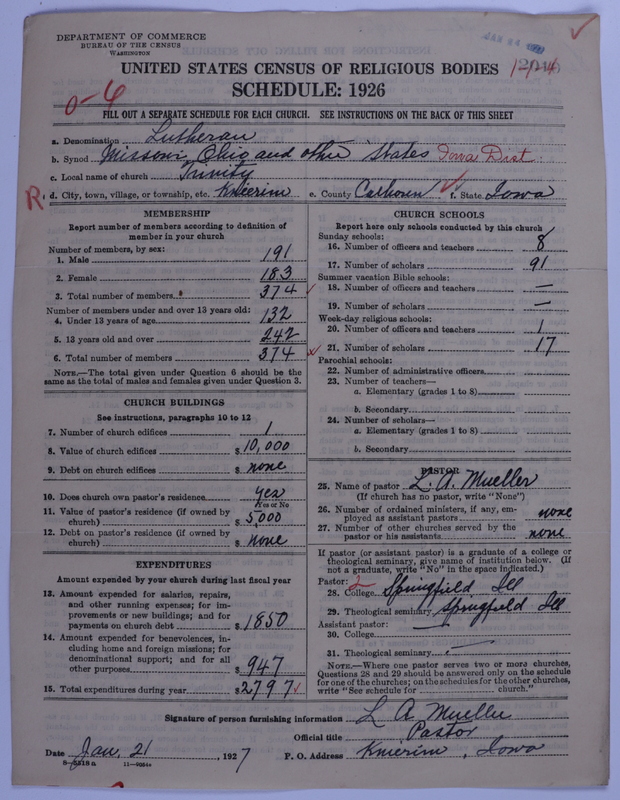 DEPARTMENT OF COMMERCE
BUREAU OF THE CENSUS
WASHINGTON
UNITED STATES CENSUS OF RELIGIOUS BODIES
SCHEDULE: 1926
0-6
FILL OUT A SEPARATE SCHEDULE FOR EACH CHURCH. SEE INSTRUCTIONS ON THE BACK OF THIS SHEET
a. Denomination Lutheran
b. Synod Missouri, Ohio and other States Iowa Dist.
c. Local name of church Trinity
R
d. City, town, village, or township, etc. Knierim e. County Calhoun f. State Iowa
MEMBERSHIP
Report number of members according to definition of
member in your church
Number of members, by sex:
1. Male 191
2. Female 183
3. Total number of members 374
Number of members under and over 13 years old:
4. Under 13 years of age 132
5. 13 years old and over 242
6. Total number of members 374
NOTE.—The total given under Question 6 should be
same as the total of males and females given under Question 3.
CHURCH BUILDINGS
See instructions, paragraphs 10 to 12
7. Number of church edifices 1
8. Value of church edifices $ 10,000
9. Debt on church edifices $ none
10. Does church own pastor's residence yes
Yes or No
11. Value of pastor's residence (if owned by
church) $ 5,000
12. Debt on pastor's residence (if owned by
church) $ none
EXPENDITURES
Amount expended by your church during last fiscal year
13. Amount expended for salaries, repairs,
and other running expenses; for im-
provements or new buildings; and for
payments on church debt $ 1850
14. Amount expended for benevolences, in-
cluding home and foreign missions; for
denominational support; and for all
other purposes $ 947
15. Total expenditures during year $ 2797
CHURCH SCHOOLS
Report here only schools conducted by this church
Sunday schools:
16. Number of officers and teachers 8
17. Number of scholars 91
Summer vacation Bible schools:
18. Number of officers and teachers —
19. Number of scholars —
Week-day religious schools:
20. Number of officers and teachers 1
21. Number of scholars 17
Parochial schools:
22. Number of administrative officers
23. Number of teachers—
a. Elementary (grades 1 to 8)
b. Secondary
24. Number of scholars—
a. Elementary (grades 1 to 8)
b. Secondary
PASTOR
25. Name of pastor L. A. Mueller
(If church has no pastor, write "None")
26. Number of ordained ministers, if any, em-
ployed as assistant pastors none
27. Number of other churches served by the
pastor or his assistants none
If pastor (or assistant pastor) is a graduate of a college or
theological seminary, give name of institution below. (If
not a graduate, write "No" in the space indicated.)
Pastor: 2
28. College Springfield Ill
29. Theological seminary Springfield Ill
Assistant pastor:
30. College —
31. Theological seminary —
NOTE.—Where one pastor serves two or more churches,
Questions 28 and 29 should be answered only on the schedule
for one of the churches; on the schedules for the other churches,
write "See schedule for church."
Signature of person furnishing information L A Mueller
Official title Pastor
Date Jan. 21, 1927 P. O. Address Knierim, Iowa
8-5518a 11-9054